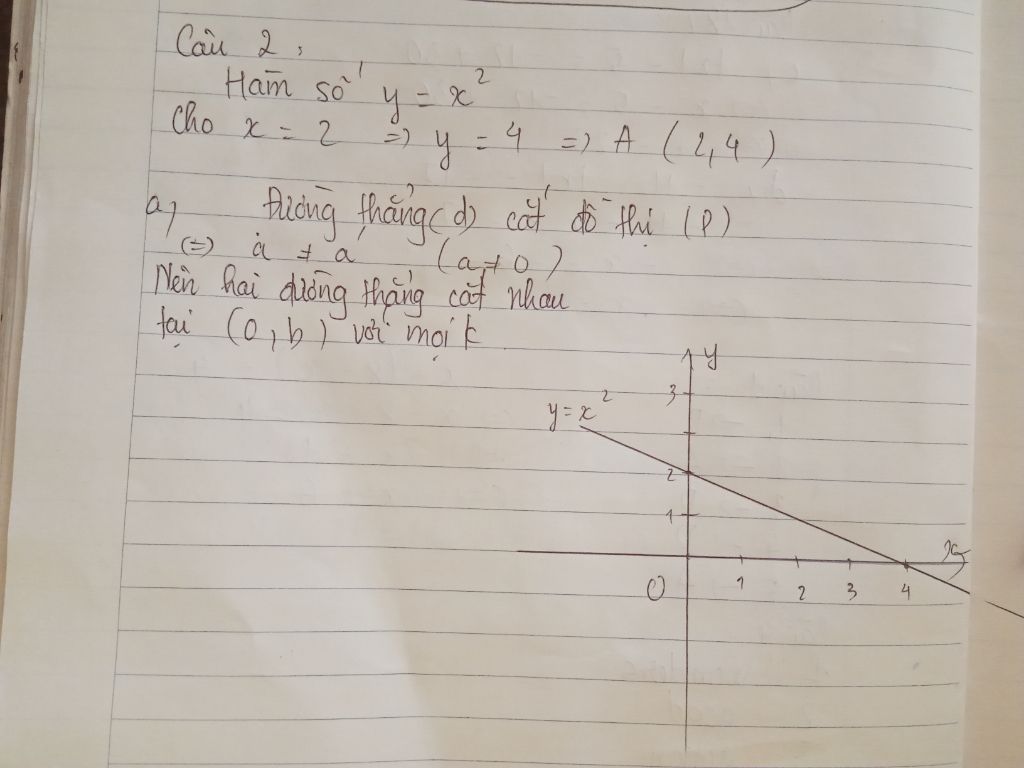 Câu 2,
Hàm số y = x²
Cho x = 2 => y = 4 => A (2,4)
a, Đường thẳng (d) cắt đồ thị (P)
(=) a ≠ a' (a ≠ 0)
Nên hai đường thẳng cắt nhau
tại (0,b) với mọi k
y
3
y = x²
2
1
x
O 1 2 3 4